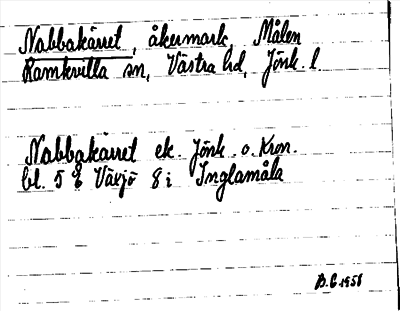 Nabbakärret, åkermark, Målen
Ramkvilla sn, Västra hd, Jönk. l.
Nabbakärret ek. Jönk. o. Kron.
bl. 5 E Växjö 8 i Inglamåla
B.G 1958